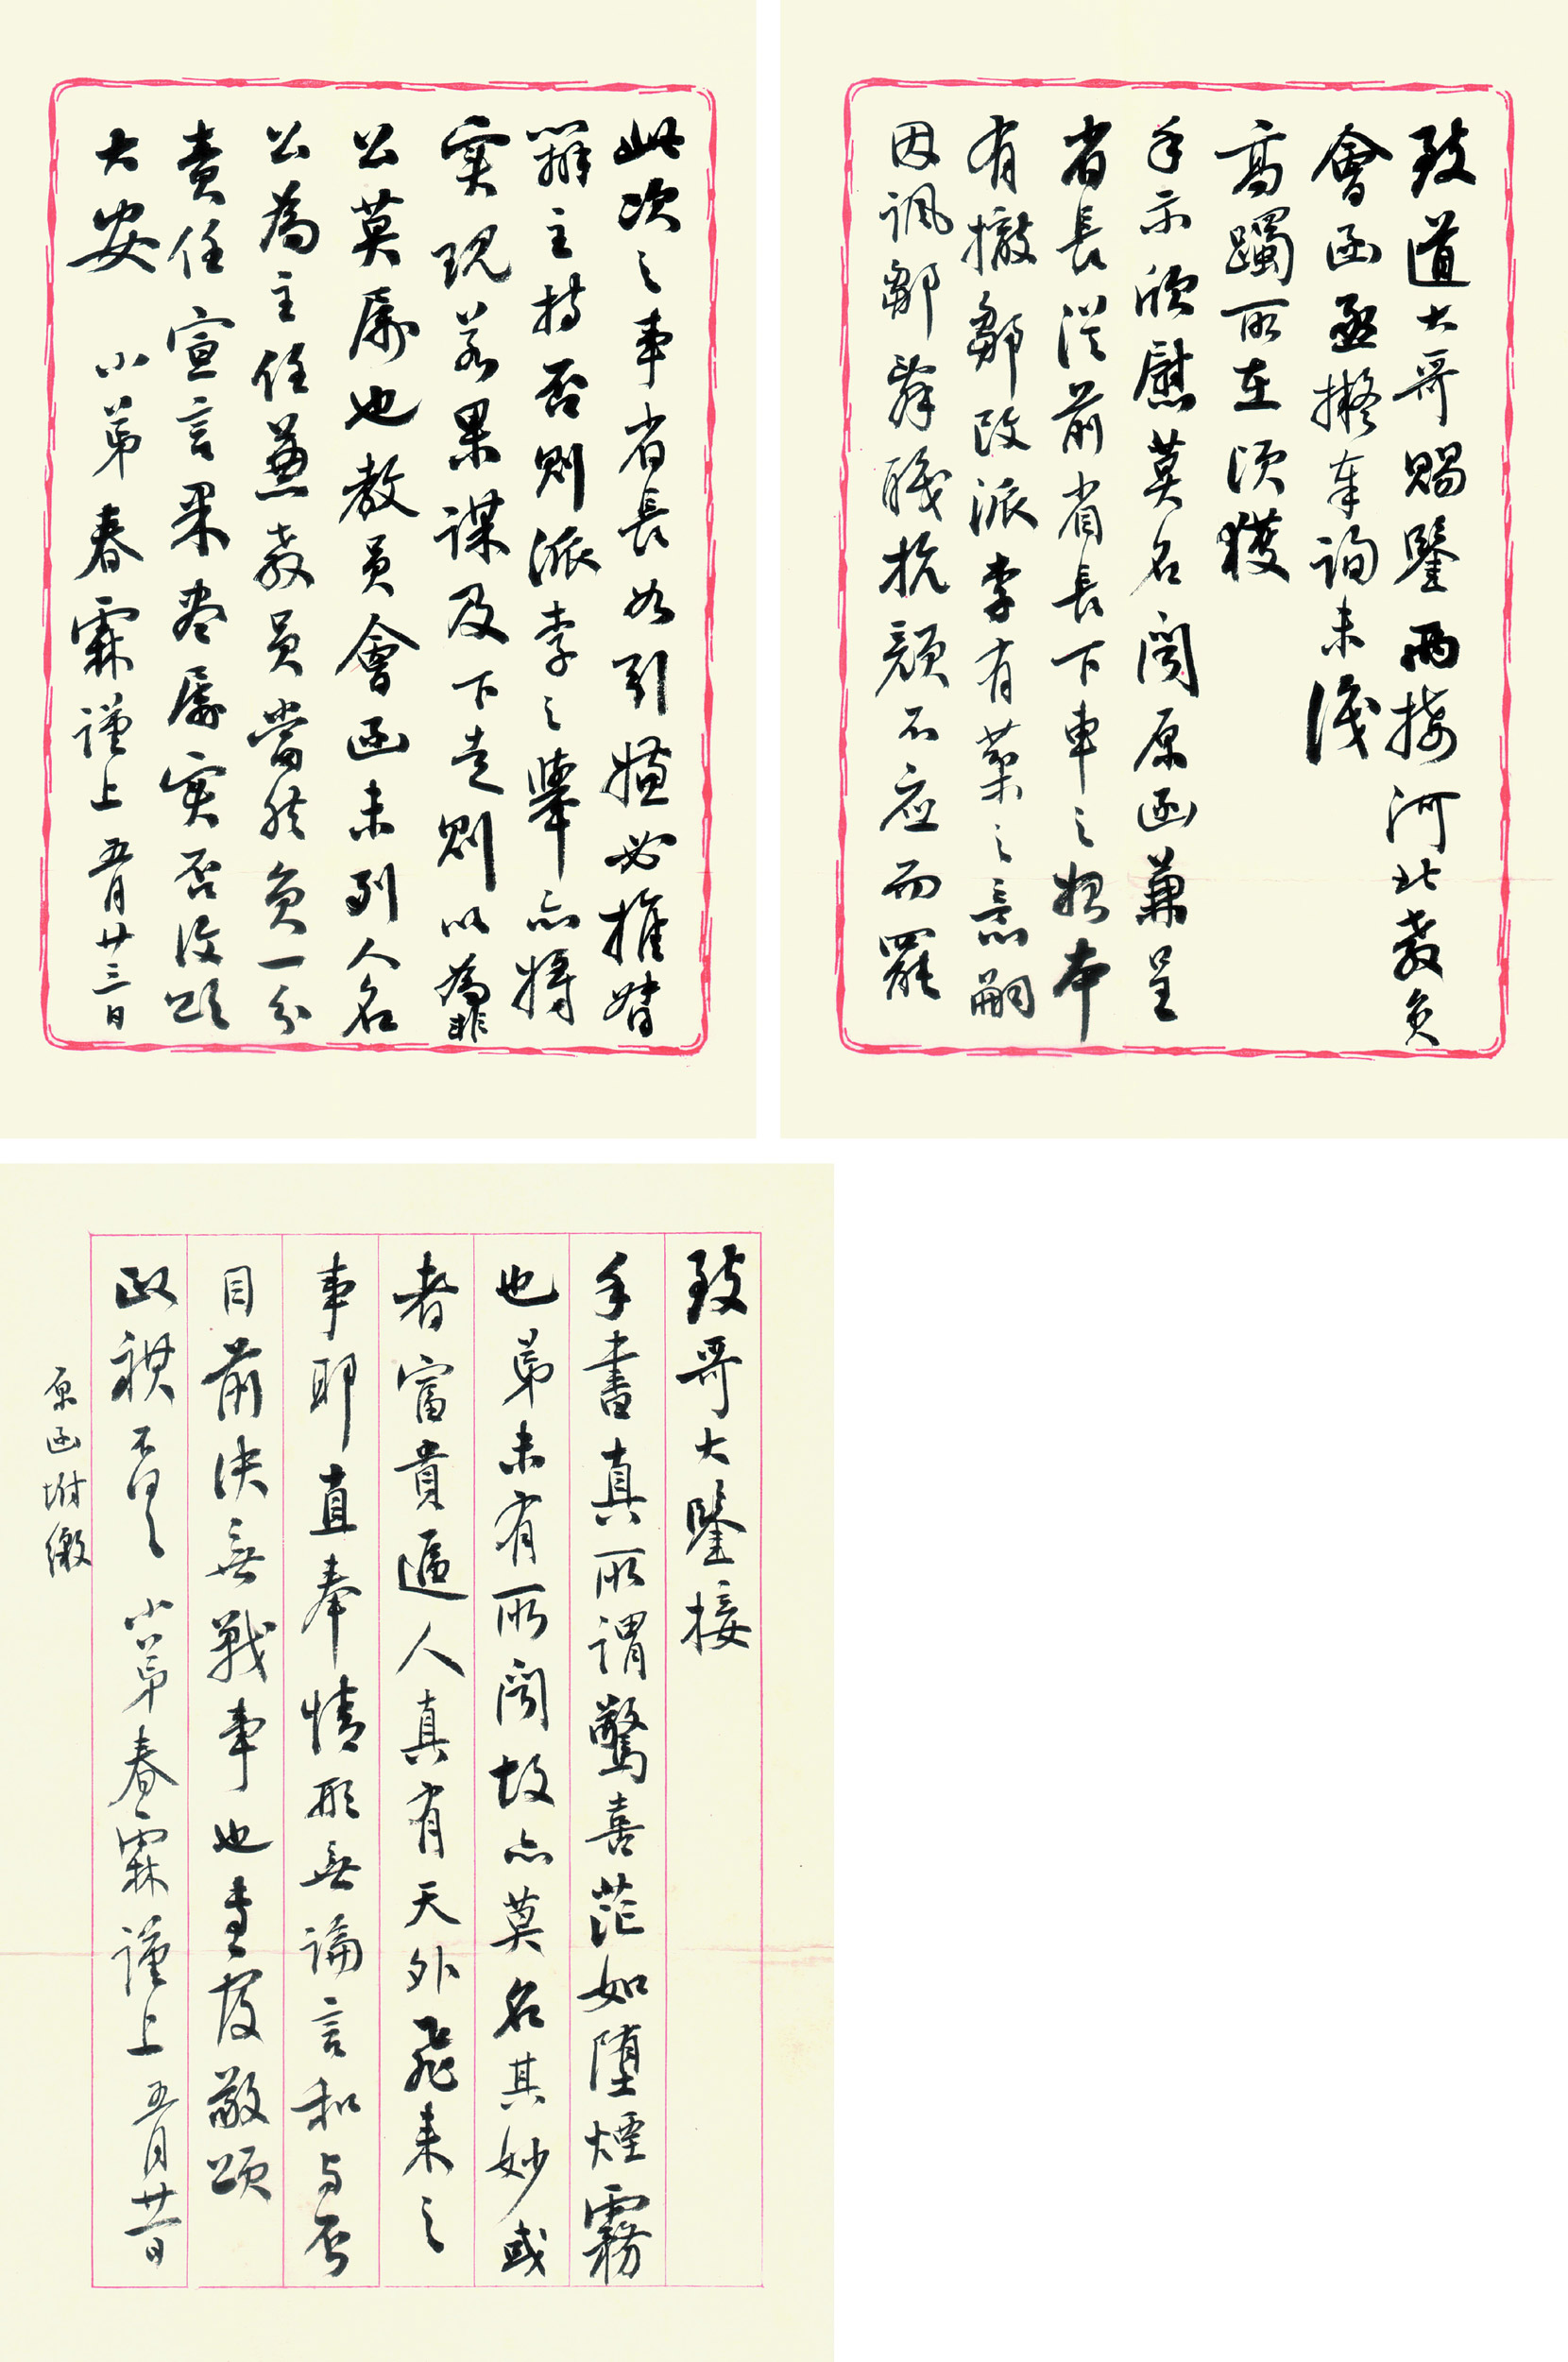 致道大哥賜鑒兩接河北教負
會函亟擬奉詢未識
高躅所在須獲
手示欣慰莫名閱原函兼呈
省長從前省長下車之初本
有撤鄒改派李有棻之意嗣
因諷鄒辭職抗顏不應而罷
此次之事省長如引嫌必推督
辦主持否則派李之舉亦將
實現若果謀及下走則以為非
公莫屬也教員會函未列人名
公為主任兼教員當然負一分
責任宣言果盡屬實否復頌
大安 小弟春霖謹上 五月廿三日
致哥大鑒接
手書真所謂驚喜茫如墮煙霧
也弟未有所聞故亦莫名其妙或
者富貴逼人真有天外飛來之
事耶直奉情形無論言和與否
目前決無戰事也專復敬頌
政祺不宣 小弟春霖謹上 五月廿日
原函坿繳